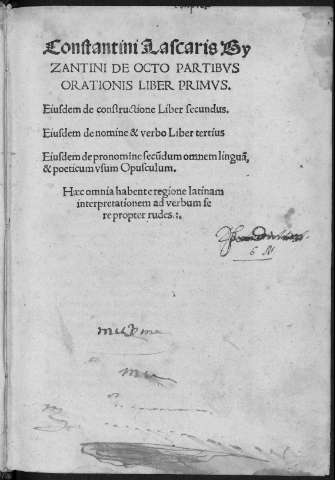 Constantini Lascaris By
ZANTINI DE OCTO PARTIBVS
ORATIONIS LIBER PRIMVS.
Eiusdem de constructione Liber secundus.
Eiusdem de nomine & verbo Liber tertius
Eiusdem de pronomine secūdum omnem linguã,
& poeticum vsum Opusculum.
Hæc omnia habent e regione latinam
interpretationem ad verbum fe
re propter rudes:.